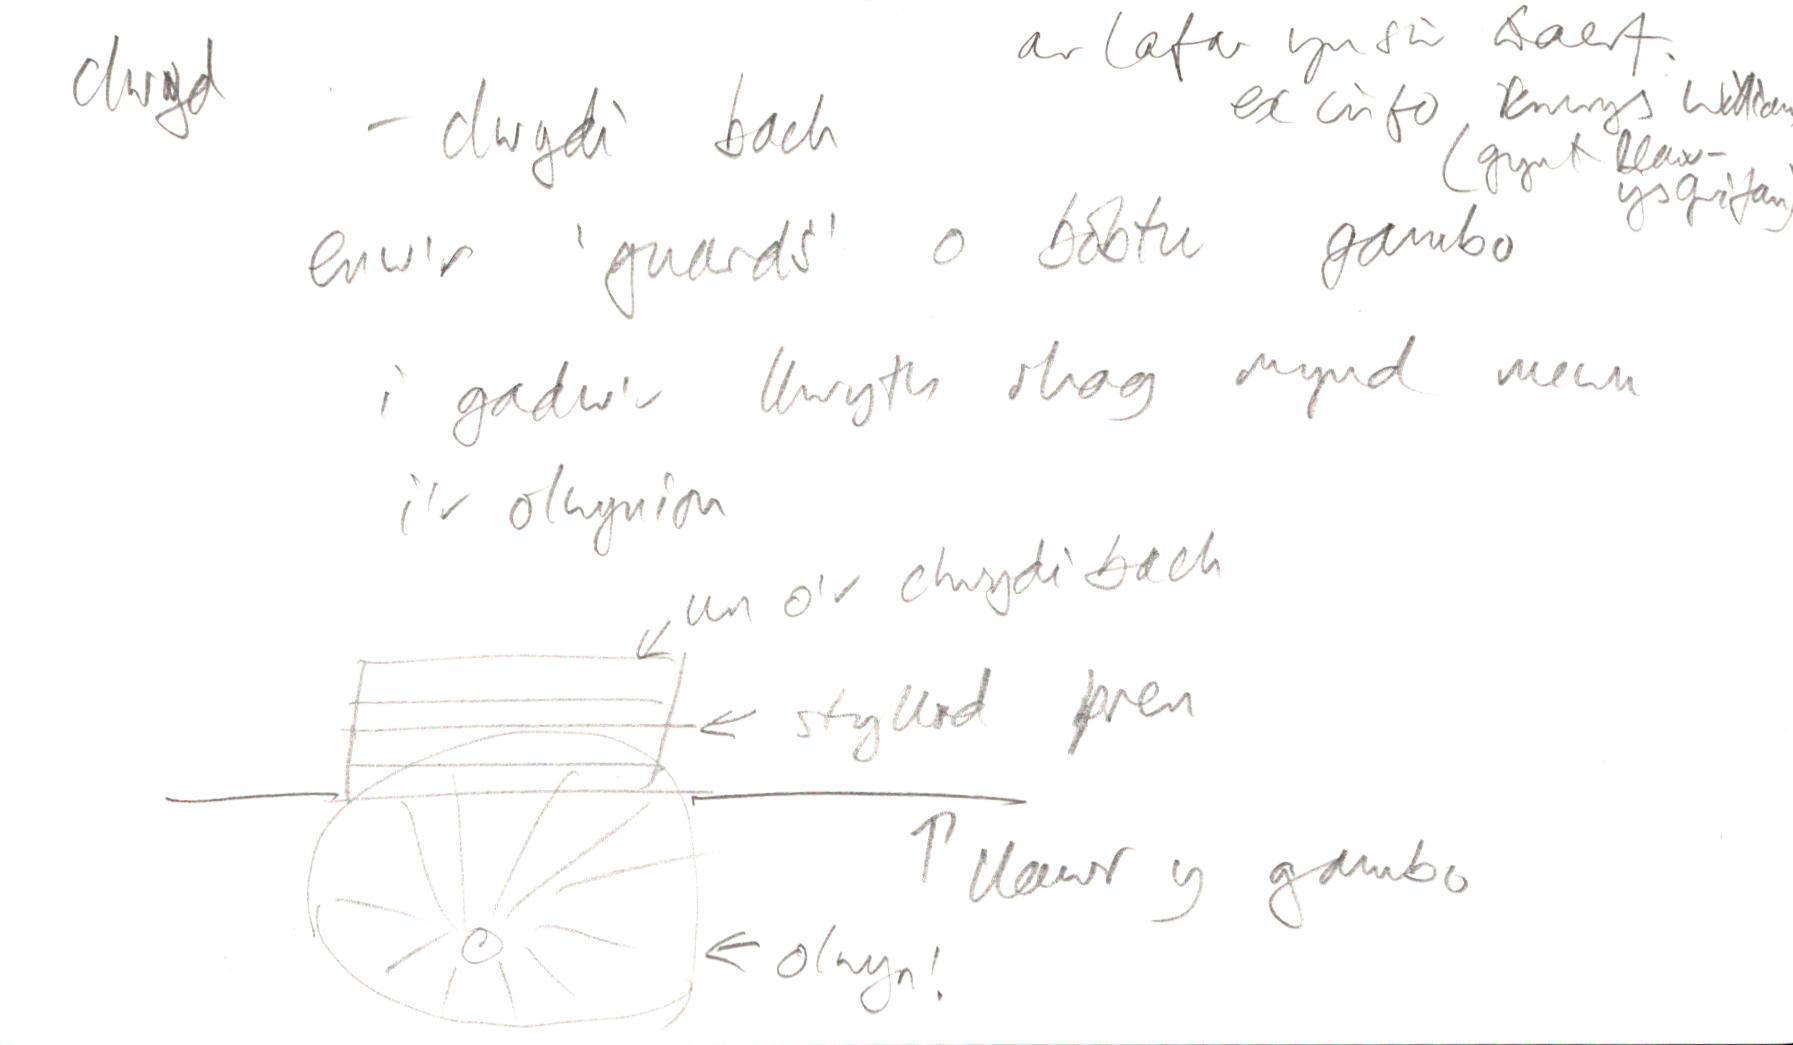 clwyd
ar lafar yn sir Gaerf.
ex info Kemys William
(gynt Blaen-
ysgrifan)
- clwydi bach
enw'r 'guards' o bobtu gambo
i gadw'r llwyth rhag mynd mewn
i'r olwynion
un o'r clwydi bach
styllod pren
llawr y gambo
olwyn!